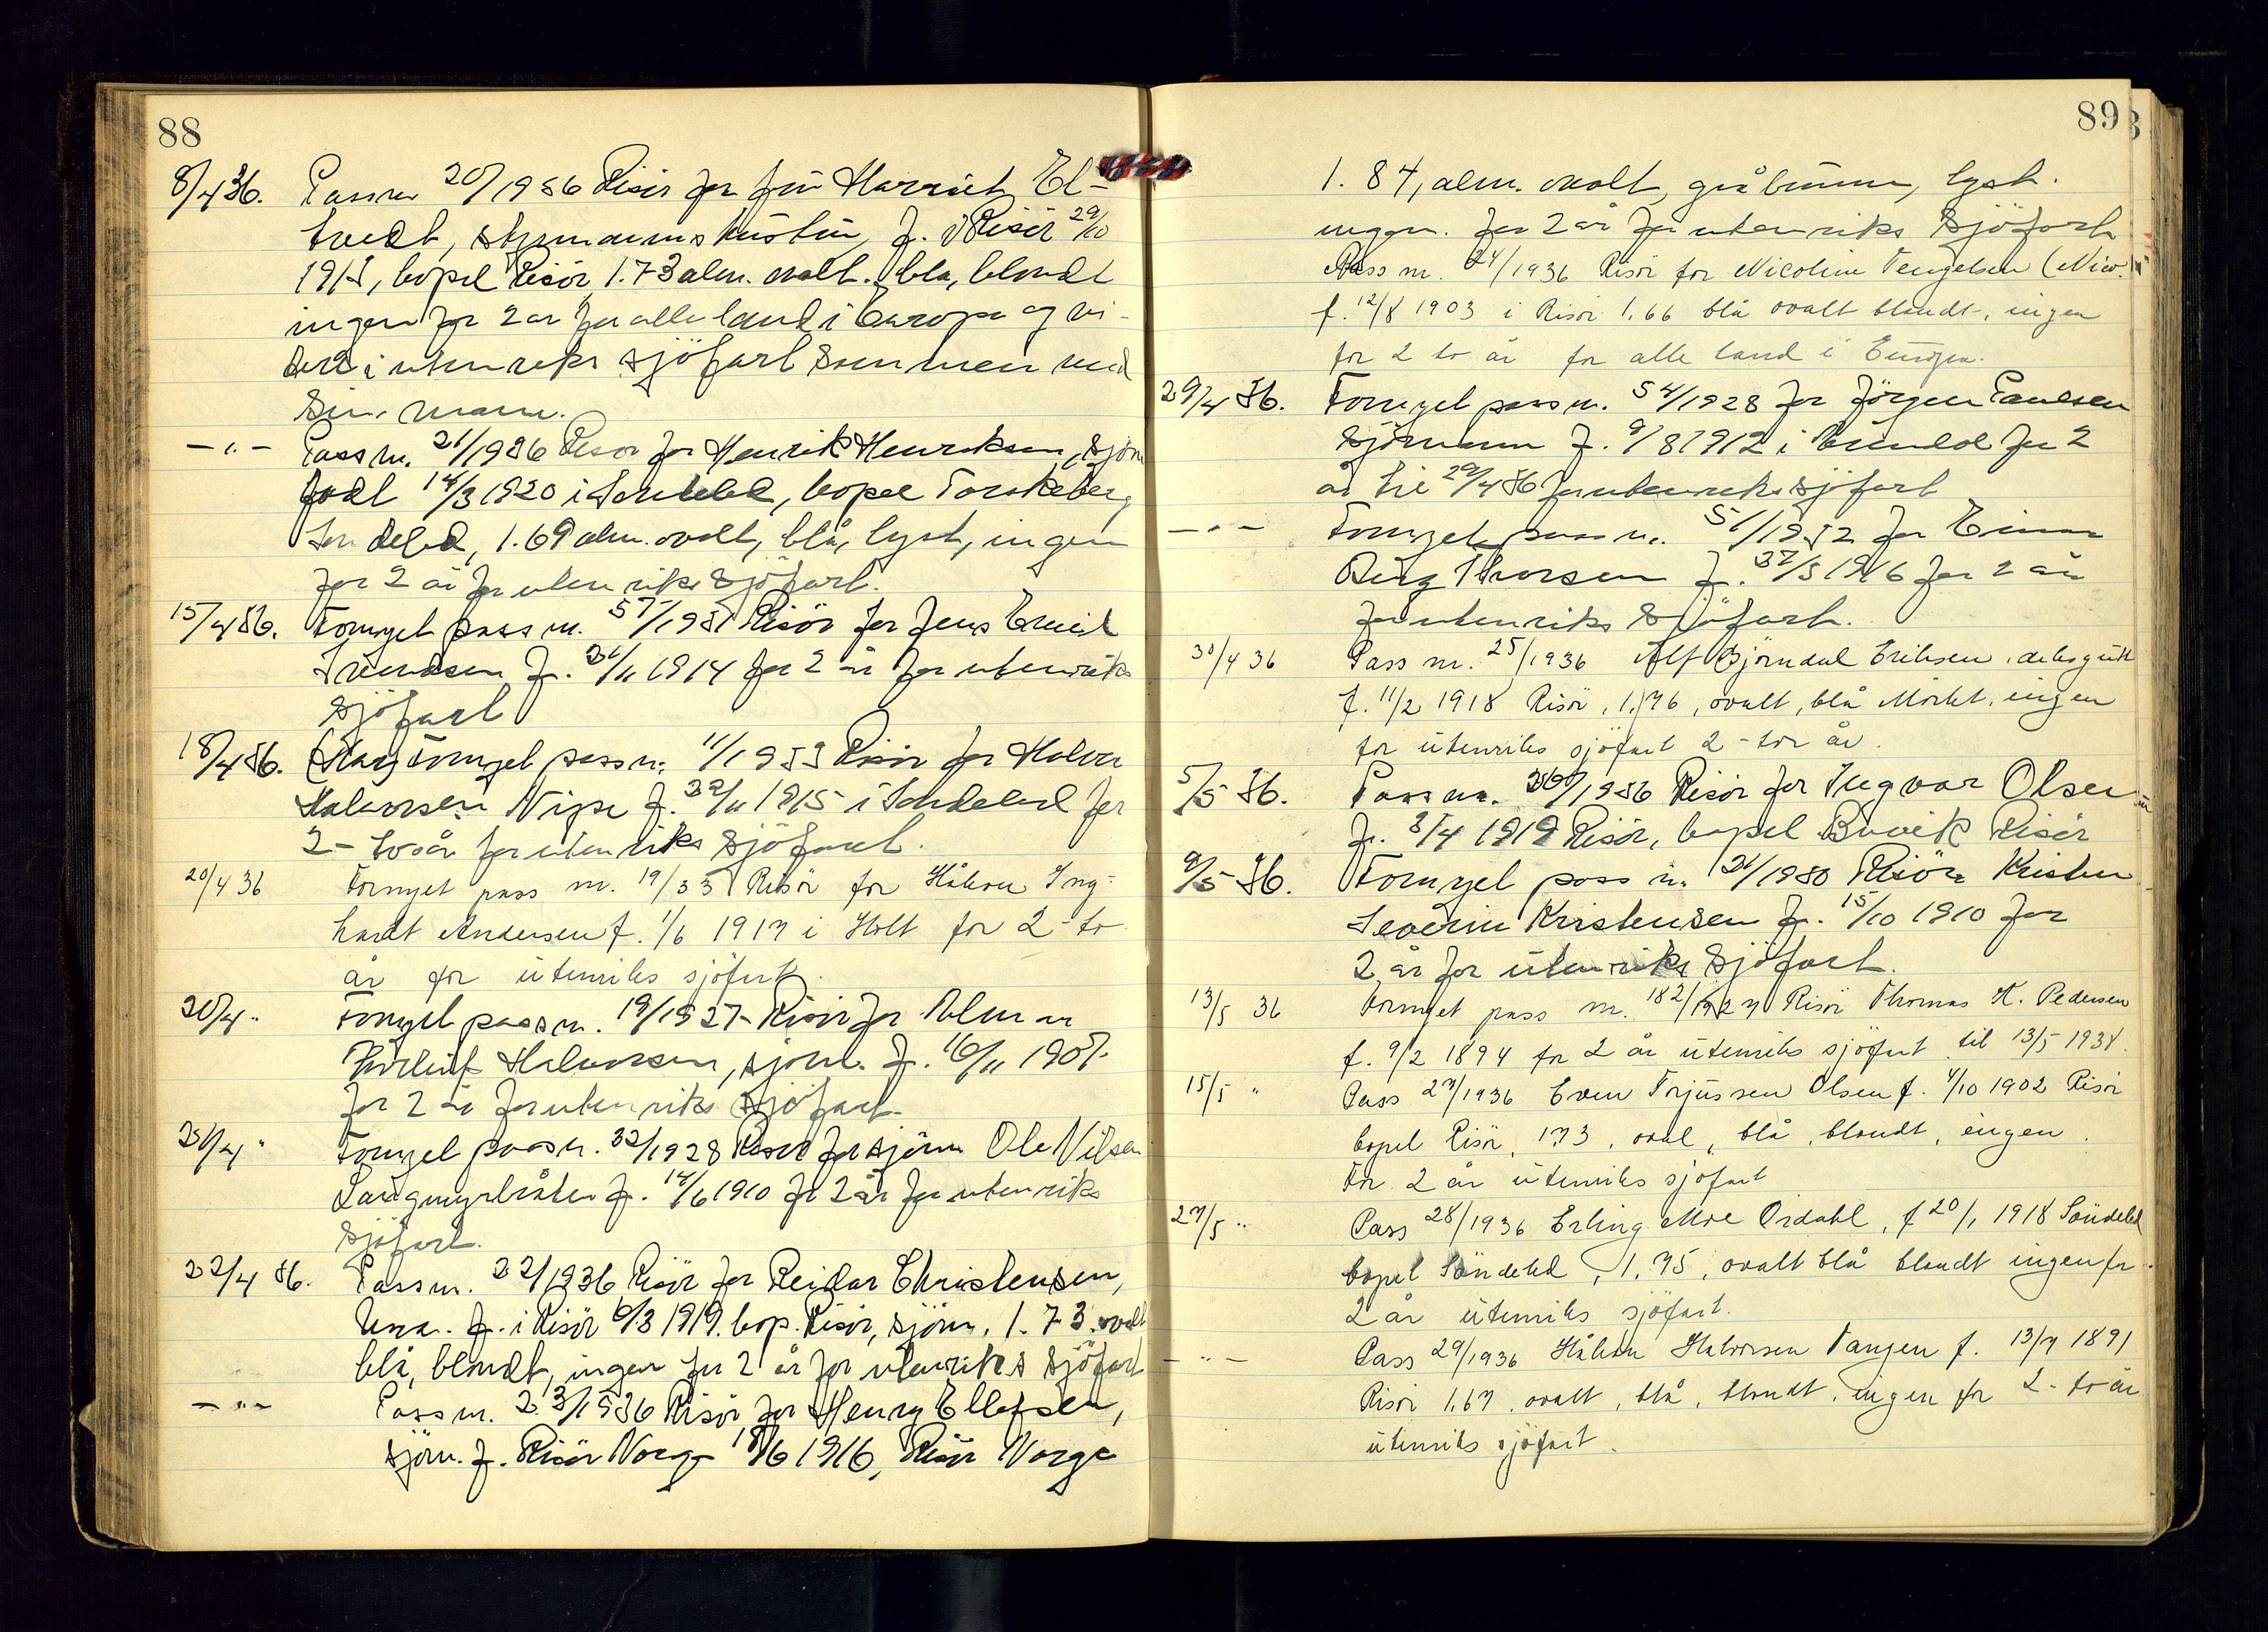 88
8/4 36. Passnr 20/1936 Risör for fru Harriet El-
tvedt, styrmannshustru, f. i Risör 29/10
1915, bopel Risör, 1.73 alm. ovalt. blå, blondt
ingen for 2 år for alle land i Europa og vi-
dere i utenriks sjöfart sammen med
sin mann.
- " - Pass nr. 21/1936 Risör for Henrik Henriksen, sjöm
födt 14/3 1920 i Söndeled, bopel Torskeberg
Söndeled, 1.69 alm. ovalt, blå, lyst, ingen
for 2 år for utenriks sjöfart.
15/4 36. Fornyet pass nr. 57/1931 Risör for Jens Emil
Svendsen f. 21/11 1914 for 2 år for utenriks
sjöfart
18/4 36. Fornyet pass nr. 11/1933 Risör for Halvor
Halvorsen Nipe f. 22/11 1915 i Söndeled for
2- to år for utenriks sjöfart.
20/4 36 Fornyet pass nr. 19/33 Risör for Håkon Ing-
hardt Andersen f. 1/6 1917 i Holt for 2- to
år for utenriks sjöfart.
20/4 " Fornyet pass nr. 19/1927 Risör for
Halvorsen, sjöm. f. 16/11 1907.
for 2 år for utenriks sjöfart.
21/4 " Fornyet pass nr. 32/1928 Risör for sjöm Ole Nilsen
Langmyrbråten f. 14/6 1910 for 2 år for utenriks
sjöfart.
22/4 36. Pass nr. 22/1936 Risör for Reidar Christensen,
f. i Risör 6/3 1919. bop. Risör, sjöm. 1.73. ovalt
blå, blondt, ingen for 2 år for utenriks sjöfart
- " - Pass nr. 23/1936 Risör for Henry Ellefsen,
sjöm. f. Risör Norge 18/6 1916, Risör Norge
89
1.84, alm. ovalt, gråbrune, lyst.
ingen. for 2 år for utenriks sjöfart
Pass nr. 24/1936 Risör for Nicoline Tengelsen (Nico.
f. 12/8 1903 i Risör 1.66 blå ovalt blondt, ingen
for 2 to år for alle land i Europa.
29/4 36. Fornyet pass nr. 54/1928 for Jörgen Paulsen
Sjömann f. 9/8 1912 i for 2
år til 29/4 36 for utenriks sjöfart
- " - Fornyet pass nr. 51/1932 for Einar
Berg Thorsen f. /3 1916 for 2 år
for utenriks sjöfart.
30/4 36 Pass nr. 25/1936 Alf Björndal Eriksen, deksgutt
f. 11/2 1918 Risör, 1.76, ovalt, blå Mörkt, ingen
for utenriks sjöfart 2- to år.
5/5 36. Pass nr. 26/1936 Risör for Ingvar Olsen
f. 3/4 1919 Risör, bopel Buvik Risör
9/5 36. Fornyet pass nr. 21/1930 Risör Kristen
Severin Kristensen f. 15/10 1910 for
2 år for utenriks sjöfart.
13/5 36 Fornyet pass nr. 182/1927 Risör Thomas K. Pedersen
f. 9/2 1894 for 2 år utenriks sjöfart til 13/5 1938.
15/5 " Pass 27/1936 Even Torjussen Olsen f. 4/10 1902 Risör
bopel Risör, 173, oval, blå, blondt, ingen.
For 2 år utenriks sjöfart
27/5 " Pass 28/1936 Erling Moe Ordahl, f 20/1 1918 Söndeled
bopel Söndeled, 1.75, ovalt blå blondt ingen for
2 år utenriks sjöfart.
- " - Pass 29/1936 Håkon Halvorsen Tangen f. 13/7 1891
Risör 1.67, ovalt, blå, blondt, ingen for 2- to år
utenriks sjöfart.